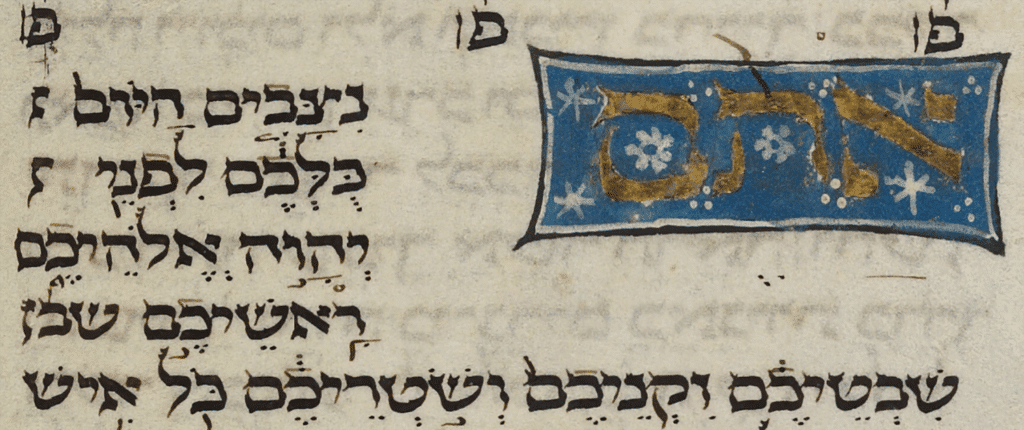 פ פ פ
אתם
נִצָּבִים הַיּוֹם
כֻּלְּכֶם לִפְנֵי
יְהוָה אֱלֹהֵיכֶם
רָאשֵׁיכֶם שב
שִׁבְטֵיכֶם זִקְנֵיכֶם וְשֹׁטְרֵיכֶם כֹּל אִישׁ